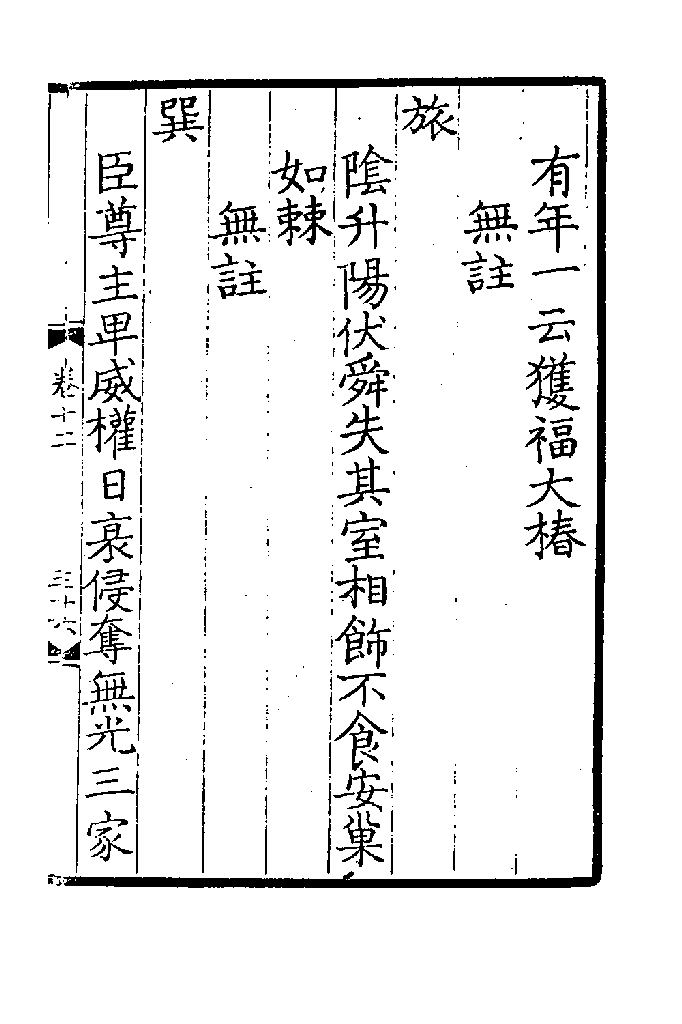 有年一云獲福大椿
無註
旅
陰升陽伏舜失其室相飾不食安巢
如棘
無註
巽
臣尊主卑威權日衰侵奪無光三家
卷十二
三十六